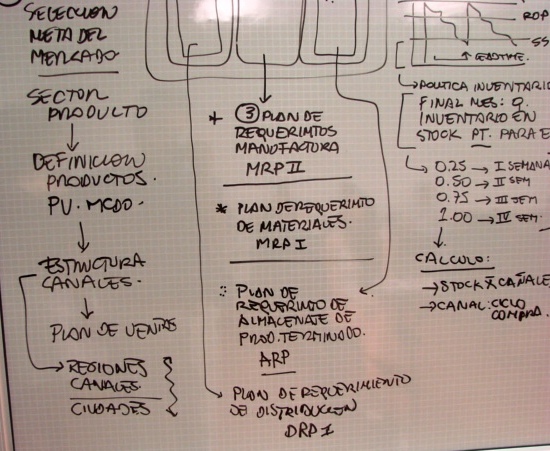 SELECCION
META DEL
MERCADO.
SECTOR
PRODUCTO
DEFINICION
PRODUCTOS.
PV. MCDO.
ESTRUCTURA
CANALES.
PLAN DE VENTAS
REGIONES
CANALES
CIUDADES
* 3 PLAN DE
REQUERIMTOS
MANUFACTURA
MRP II
* PLAN DE REQUERIMTO
DE MATERIALES.
MRP I
PLAN DE
REQUERIMTO DE
ALMACENATE DE
PROD. TERMINADO.
ARP
PLAN DE REQUERIMIENTO
DE DISTRIBUCION
DRP I
ROP
SS
LEADTIME.
POLITICA INVENTARIO
FINAL MES: Q.
INVENTARIO EN
STOCK PT. PARA E
0.25 → I SEMANA
0.50 → II SEM
0.75 → III SEM
1.00 → IV SEM.
CALCULO:
→ STOCK X CANALE
→ CANAL: CICLO
COMPRA.